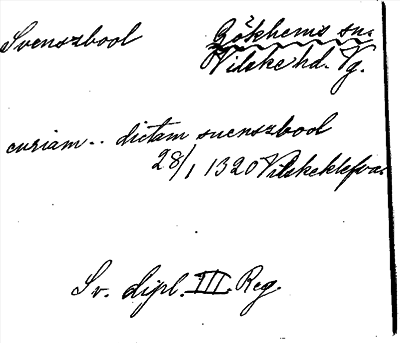 Svenszbool Gökhems sn.
Vilske hd. Vg.
curiam.. dictam suenszbool
28/1 1320 Vilskeklefva
Sv. dipl. III. Reg.